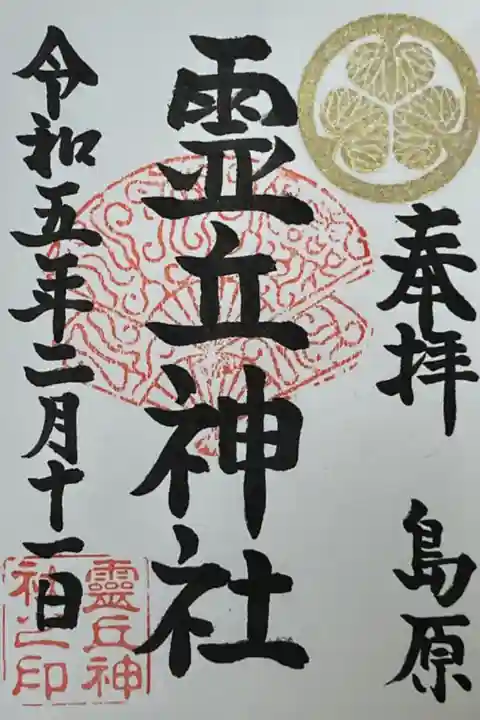 奉拝
島原
霊丘神社
令和五年二月十一日
靈丘神
社之印